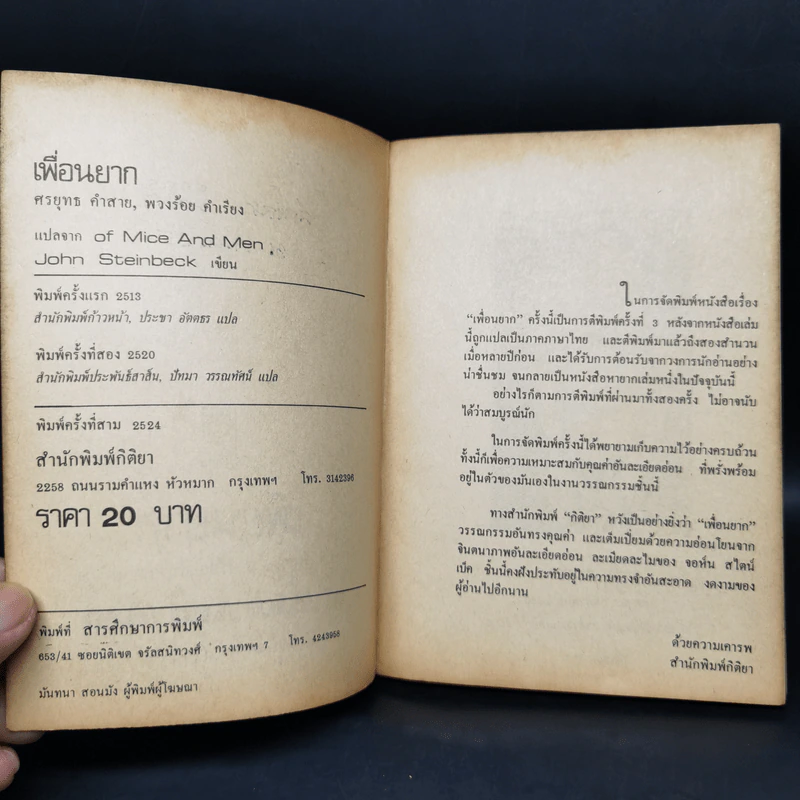 เพื่อนยาก
ศรยุทธ คำสาย, พวงร้อย คำเรียง
แปลจาก of Mice And Men
John Steinbeck เขียน
พิมพ์ครั้งแรก 2513
สำนักพิมพ์ก้าวหน้า, ประชา อัตตธร แปล
พิมพ์ครั้งที่สอง 2520
สำนักพิมพ์ประพันธ์สาส์น, ปัทมา วรรณทัศน์ แปล
พิมพ์ครั้งที่สาม 2524
สำนักพิมพ์กิติยา
2258 ถนนรามคำแหง หัวหมาก กรุงเทพฯ โทร. 3142396
ราคา 20 บาท
พิมพ์ที่ สารศึกษาการพิมพ์
653/41 ซอยนิติเขต จรัลสนิทวงศ์ กรุงเทพฯ 7 โทร. 4243958
มันทนา สอนมัง ผู้พิมพ์ผู้โฆษณา
ในการจัดพิมพ์หนังสือเรื่อง
“เพื่อนยาก” ครั้งนี้เป็นการตีพิมพ์ครั้งที่ 3 หลังจากหนังสือเล่ม
นี้ถูกแปลเป็นภาคภาษาไทย และตีพิมพ์มาแล้วถึงสองสำนวน
เมื่อหลายปีก่อน และได้รับการต้อนรับจากวงการนักอ่านอย่าง
น่าชื่นชม จนกลายเป็นหนังสือหายากเล่มหนึ่งในปัจจุบันนี้
อย่างไรก็ตามการตีพิมพ์ที่ผ่านมาทั้งสองครั้ง ไม่อาจนับ
ได้ว่าสมบูรณ์นัก
ในการจัดพิมพ์ครั้งนี้ได้พยายามเก็บความไว้อย่างครบถ้วน
ทั้งนี้ก็เพื่อความเหมาะสมกับคุณค่าอันละเอียดอ่อน ที่พรั่งพร้อม
อยู่ในตัวของมันเองในงานวรรณกรรมชิ้นนี้
ทางสำนักพิมพ์ “กิติยา” หวังเป็นอย่างยิ่งว่า “เพื่อนยาก”
วรรณกรรมอันทรงคุณค่า และเต็มเปี่ยมด้วยความอ่อนโยนจาก
จินตนาภาพอันละเอียดอ่อน ละเมียดละไมของ จอห์น สไตน์
เบ็ค ชิ้นนี้คงฝังประทับอยู่ในความทรงจำอันสะอาด งดงามของ
ผู้อ่านไปอีกนาน
ด้วยความเคารพ
สำนักพิมพ์กิติยา